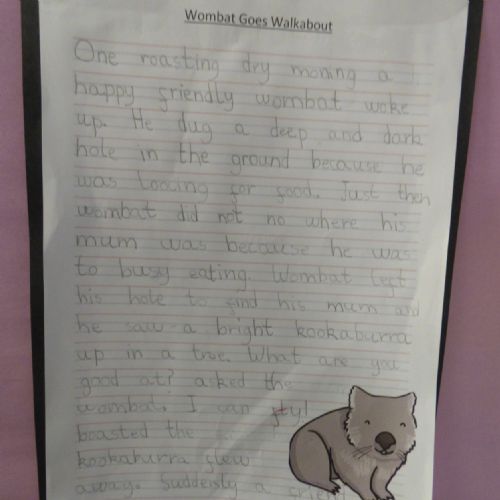 Wombat Goes Walkabout
One roasting dry moning a
happy friendly wombat woke
up. He dug a deep and dark
hole in the ground because he
was loocing for food. Just then
wombat did not no where his
mum was because he was
to busy eating. Wombat left
his hole to find his mum and
he saw a bright kookaburra
up in a tree. What are you
good at? asked the
wombat. I can fly!
boasted the
kookaburra flew
away. Suddenly a